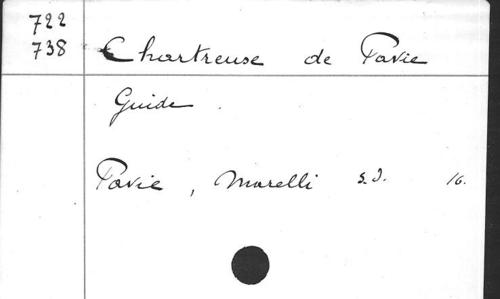 722
738
Chartreuse de Pavie
Guide.
Pavie, Marelli s.d. 16.